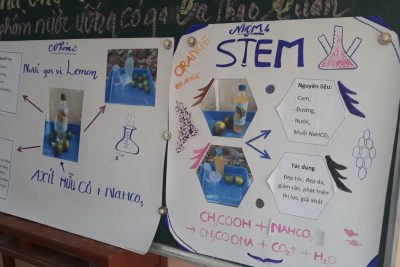 phẩm nước uống có ga
Nhóm 2
Nước gas vị Lemon
AXIT HỮU CƠ + NaHCO3
Nhóm 4
STEM
ORANGE
ORANGE
Nguyên liệu:
- Cam,
- Đường,
- Nước,
Muối NaHCO3
Tác dụng:
Đẹp tóc, đẹp da,
giảm cân, phát triển
thị lực, giải khát
CH3COOH + NaHCO3
→ CH3COONA + CO2↑ + H2O